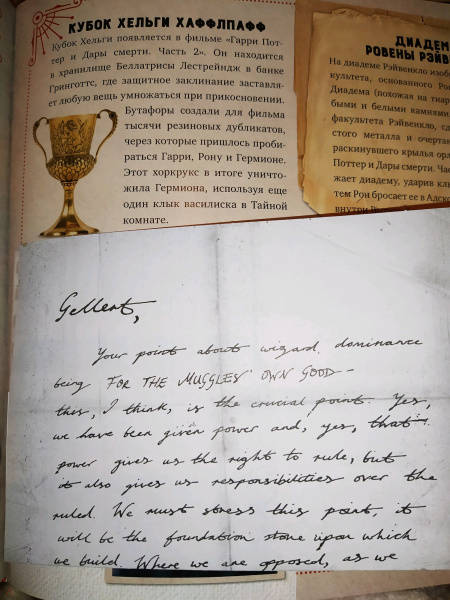 КУБОК ХЕЛЬГИ ХАФФЛПАФФ
Кубок Хельги появляется в фильме «Гарри Пот-
тер и Дары смерти. Часть 2». Он находится
в хранилище Беллатрисы Лестрейндж в банке
Гринготтс, где защитное заклинание заставля-
ет любую вещь умножаться при прикосновении.
Бутафоры создали для фильма
тысячи резиновых дубликатов,
через которые пришлось проби-
раться Гарри, Рону и Гермионе.
Этот хоркрукс в итоге уничто-
жила Гермиона, используя еще
один клык василиска в Тайной
комнате.
ДИАДЕМ
РОВЕНЫ РЭЙВ
На диадеме Рэйвенкло изоб
культета, основанного Ро
Диадема (похожая на тиар
быми и белыми камнями
факультета Рэйвенкло, сд
стого металла и очертан
раскинувшего крылья орл
Поттер и Дары смерти. Час
жает диадему, ударив клы
тем Рон бросает ее в Адск
внутри
Gellert,
Your point about wizard dominance
being FOR THE MUGGLES' OWN GOOD –
this, I think, is the crucial point. Yes,
we have been given power and, yes, that
power gives us the right to rule, but
it also gives us responsibilities over the
ruled. We must stress this point, it
will be the foundation stone upon which
we build. Where we are opposed, as we